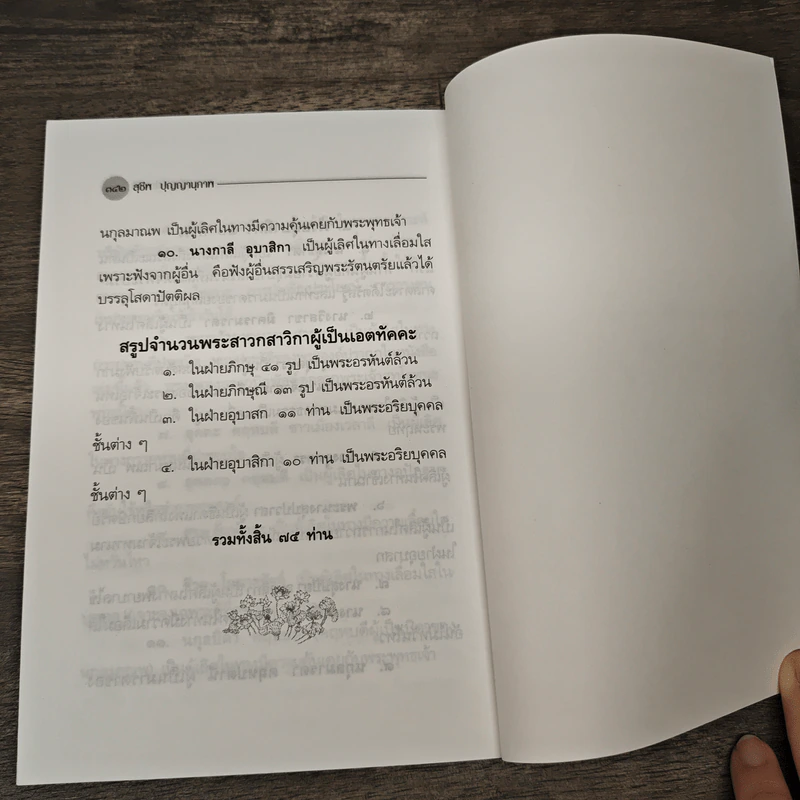 สุชีพ ปุญญานุภาพ
นกุลมาณพ เป็นผู้เลิศในทางมีความคุ้นเคยกับพระพุทธเจ้า
๑๐. นางกาลี อุบาสิกา เป็นผู้เลิศในทางเลื่อมใส
เพราะฟังจากผู้อื่น คือฟังผู้อื่นสรรเสริญพระรัตนตรัยแล้วได้
บรรลุโสดาปัตติผล
สรุปจำนวนพระสาวกสาวิกาผู้เป็นเอตทัคคะ
๑. ในฝ่ายภิกษุ ๔๑ รูป เป็นพระอรหันต์ล้วน
๒. ในฝ่ายภิกษุณี ๑๓ รูป เป็นพระอรหันต์ล้วน
๓. ในฝ่ายอุบาสก ๑๑ ท่าน เป็นพระอริยบุคคล
ชั้นต่าง ๆ
๔. ในฝ่ายอุบาสิกา ๑๐ ท่าน เป็นพระอริยบุคคล
ชั้นต่าง ๆ
รวมทั้งสิ้น ๗๕ ท่าน